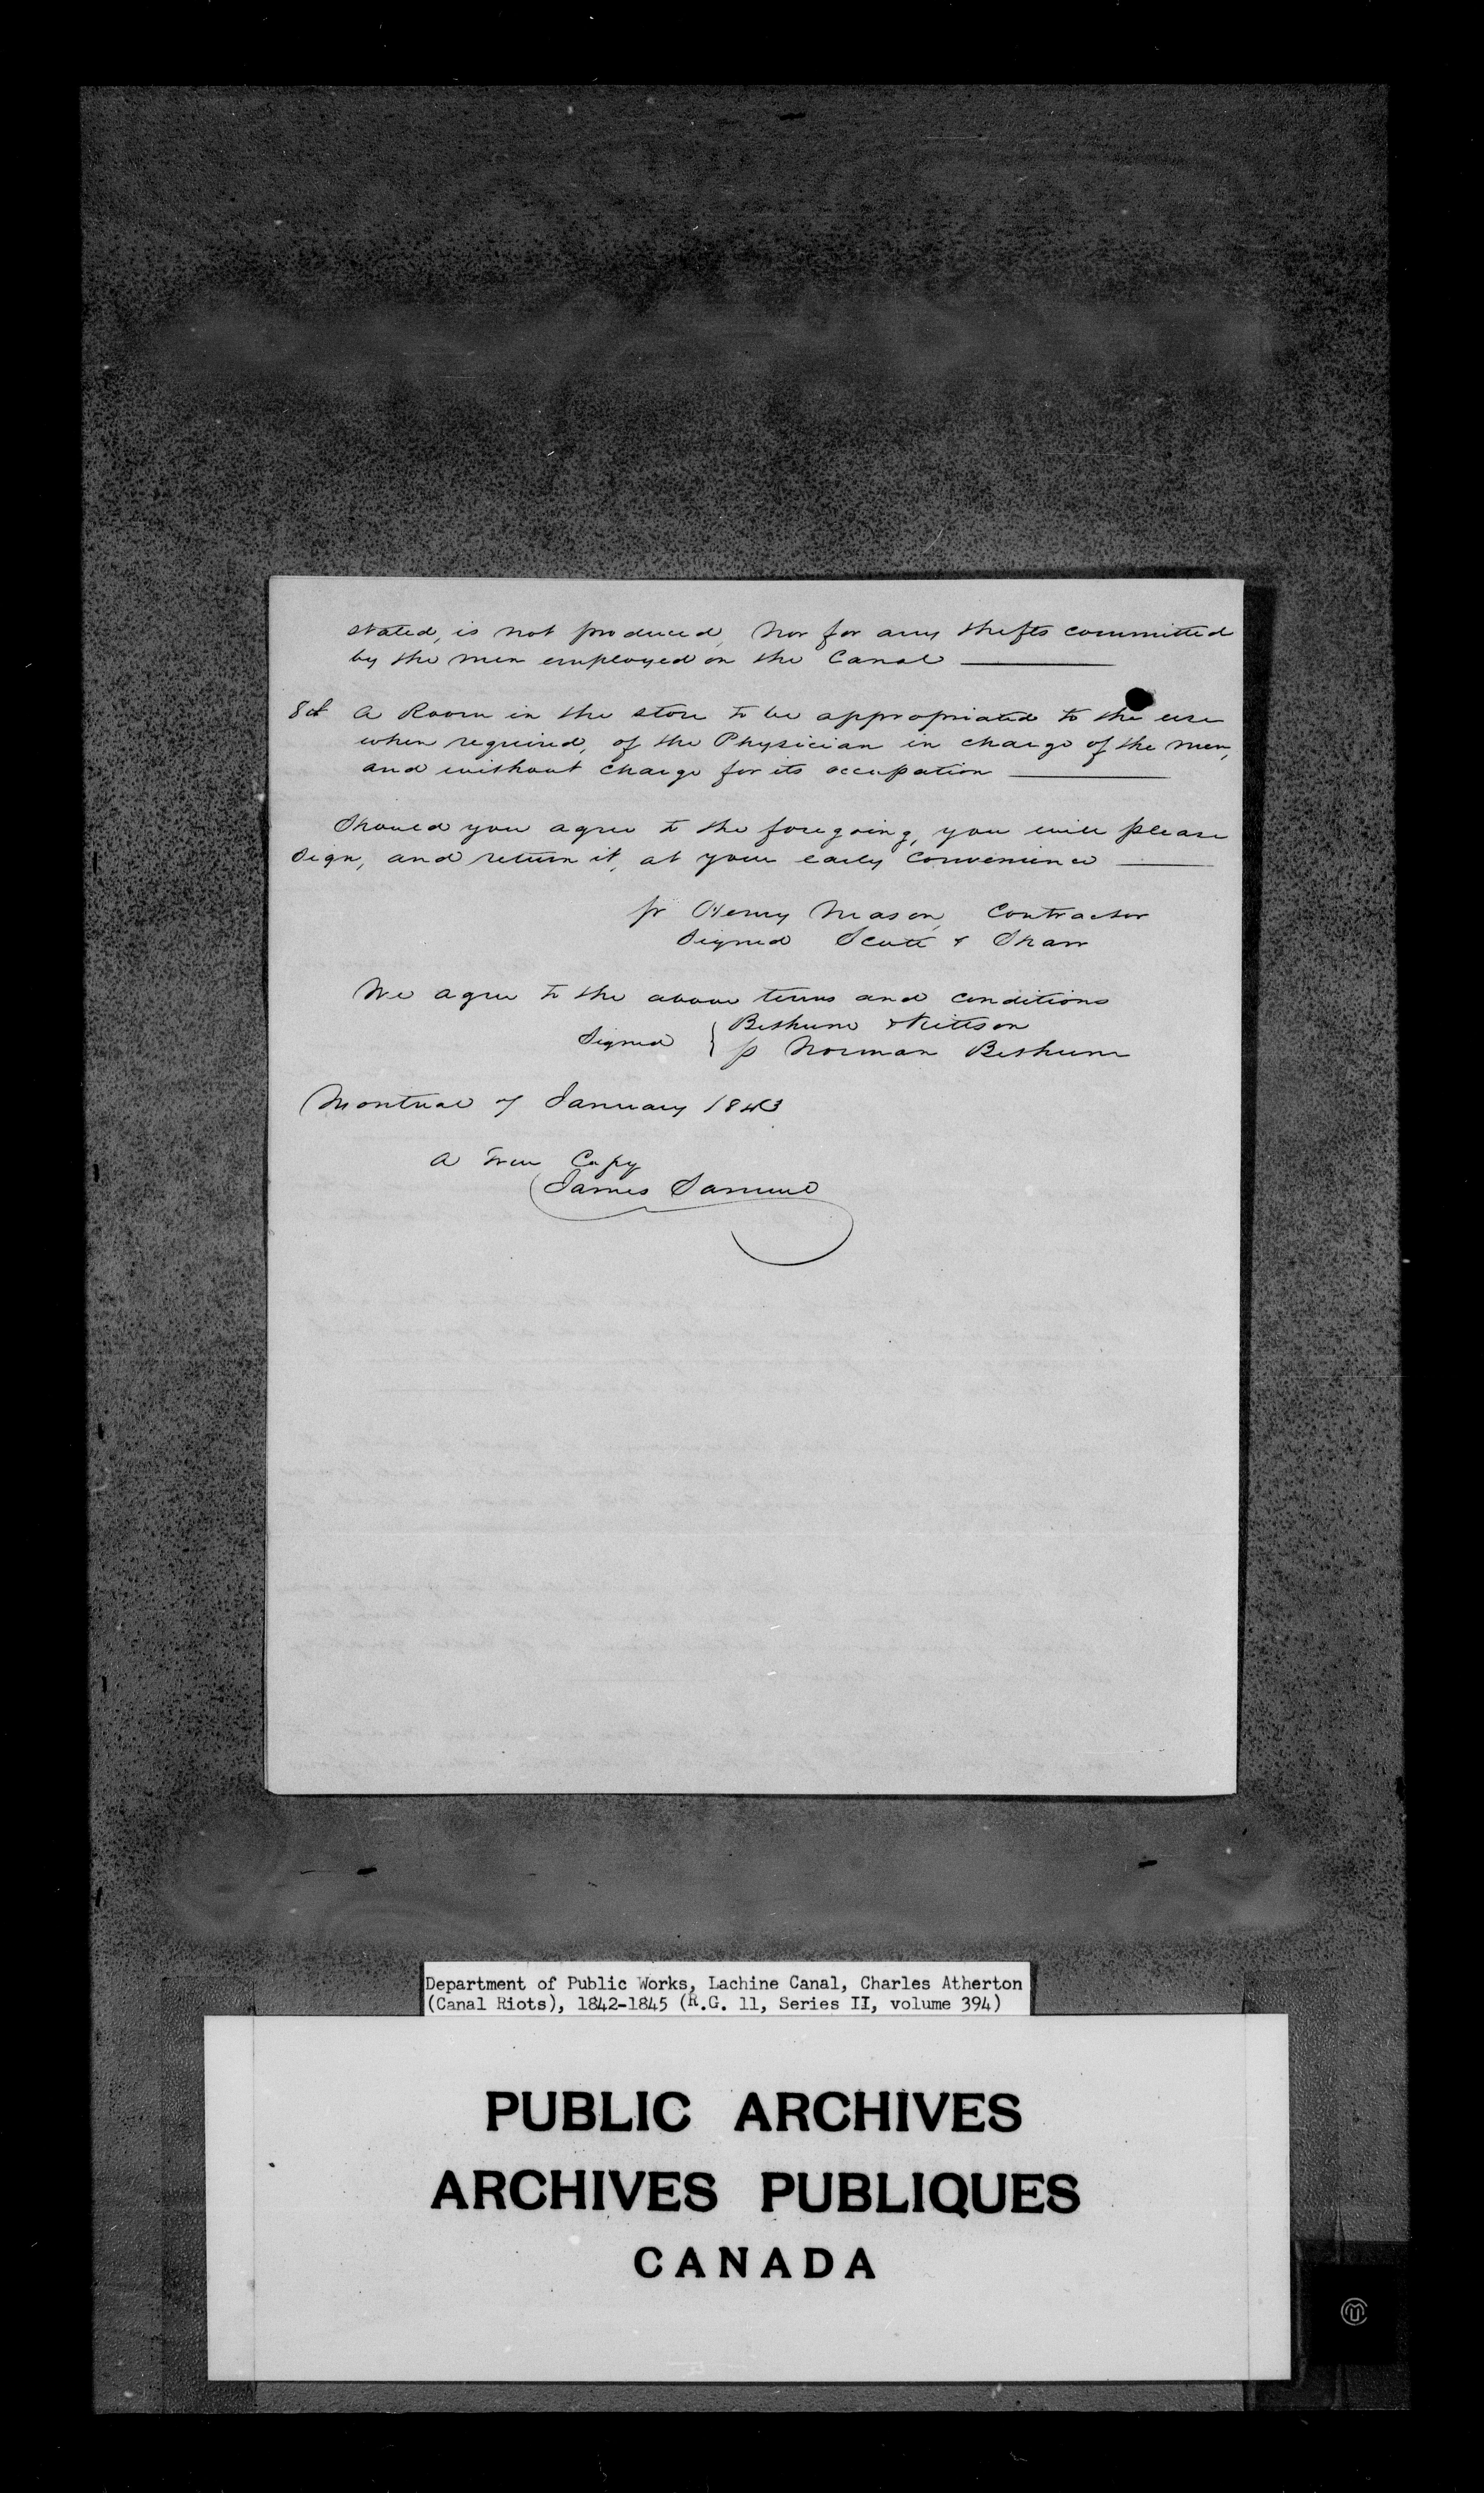 stated, is not produced, nor for any thefts committed
by the men employed on the Canal
8th A Room in the store to be appropriated to the use
when required, of the Physician in charge of the men,
and without charge for its occupation
Should you agree to the foregoing, you will please
sign, and return it, at your early convenience
pr Henry Mason, Contractor
Signed Scott & Shaw
We agree to the above terms and conditions
Bethune & Kittson
Signed p Norman Bethune
Montreal 7 January 1843
A True Copy
James Samuel
Department of Public Works, Lachine Canal, Charles Atherton
(Canal Riots), 1842-1845 (R.G. 11, Series II, volume 394)
PUBLIC ARCHIVES
ARCHIVES PUBLIQUES
CANADA